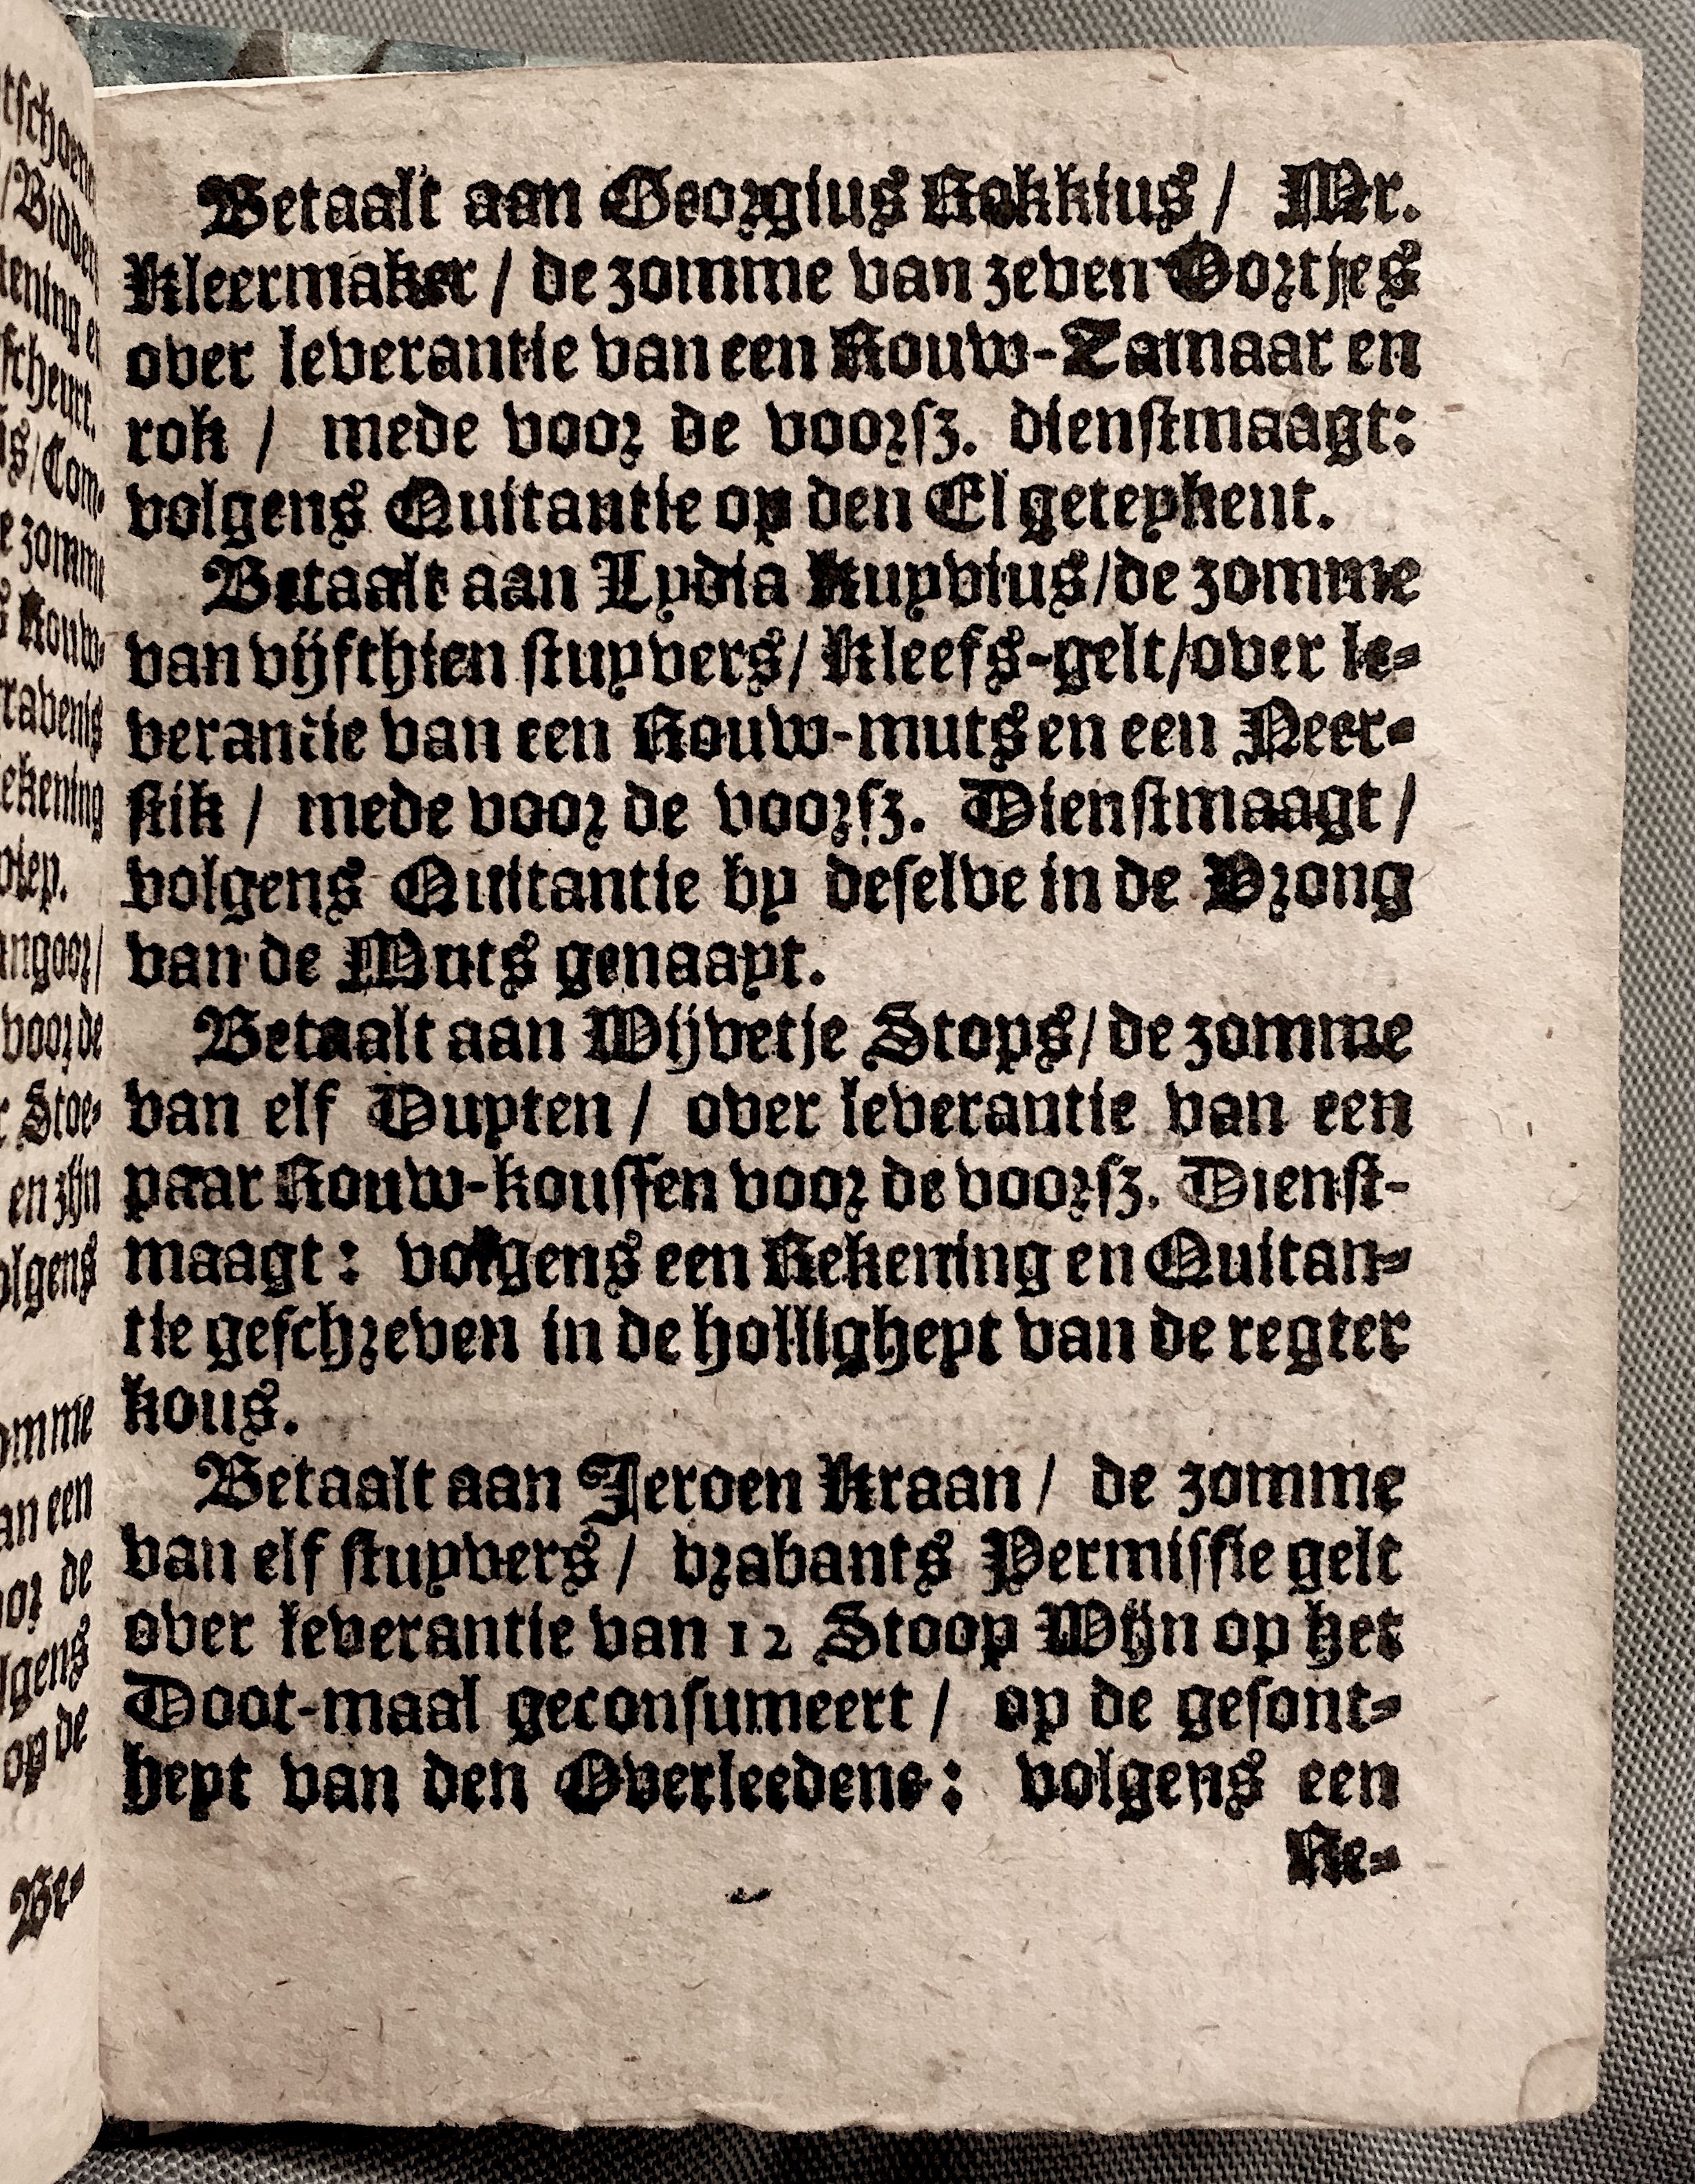 Betaalt aan Georgius Rokkius / Mr.
Kleermaker / de zomme van zeven Oortjes
over leverantie van een Rouw-Tamaar en
rok / mede voor de voorsz. dienstmaagt:
volgens Quitantie op den El geteykent.
Betaalt aan Lydia Kuyvius/de zomme
van vijfthien stuyvers/ Kleefs-gelt/over le-
verantie van een Rouw-muts en een Neer-
stik / mede voor de voorsz. Dienstmaagt /
volgens Quitantie by deselve in de Prong
van de Muts genaayt.
Betaalt aan Wijvetje Stops/de zomme
van elf Duyten / over leverantie van een
paar Rouw-koussen voor de voorsz. Dienst-
maagt: volgens een Rekening en Quitan-
tie geschreven in de holligheyt van de regter
kous.
Betaalt aan Jeroen Kraan / de zomme
van elf stuyvers / brabants Permissie gelt
over leverantie van 12 Stoop Wijn op het
Doot-maal geconsumeert / op de gesont-
heyt van den Overleedene: volgens een
Re-